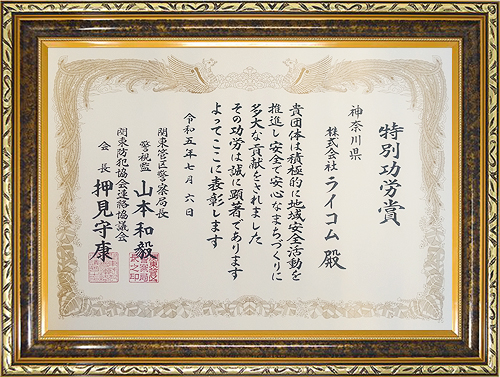 特別功労賞
神奈川県
株式会社ライコム殿
貴団体は積極的に地域安全活動を
推進し安全で安心なまちづくりに
多大な貢献をされました
その功労は誠に顕著であります
よってここに表彰します
令和五年七月六日
関東管区警察局長
警視監 山本和毅
関東防犯協会連絡協議会
会長 押見守康